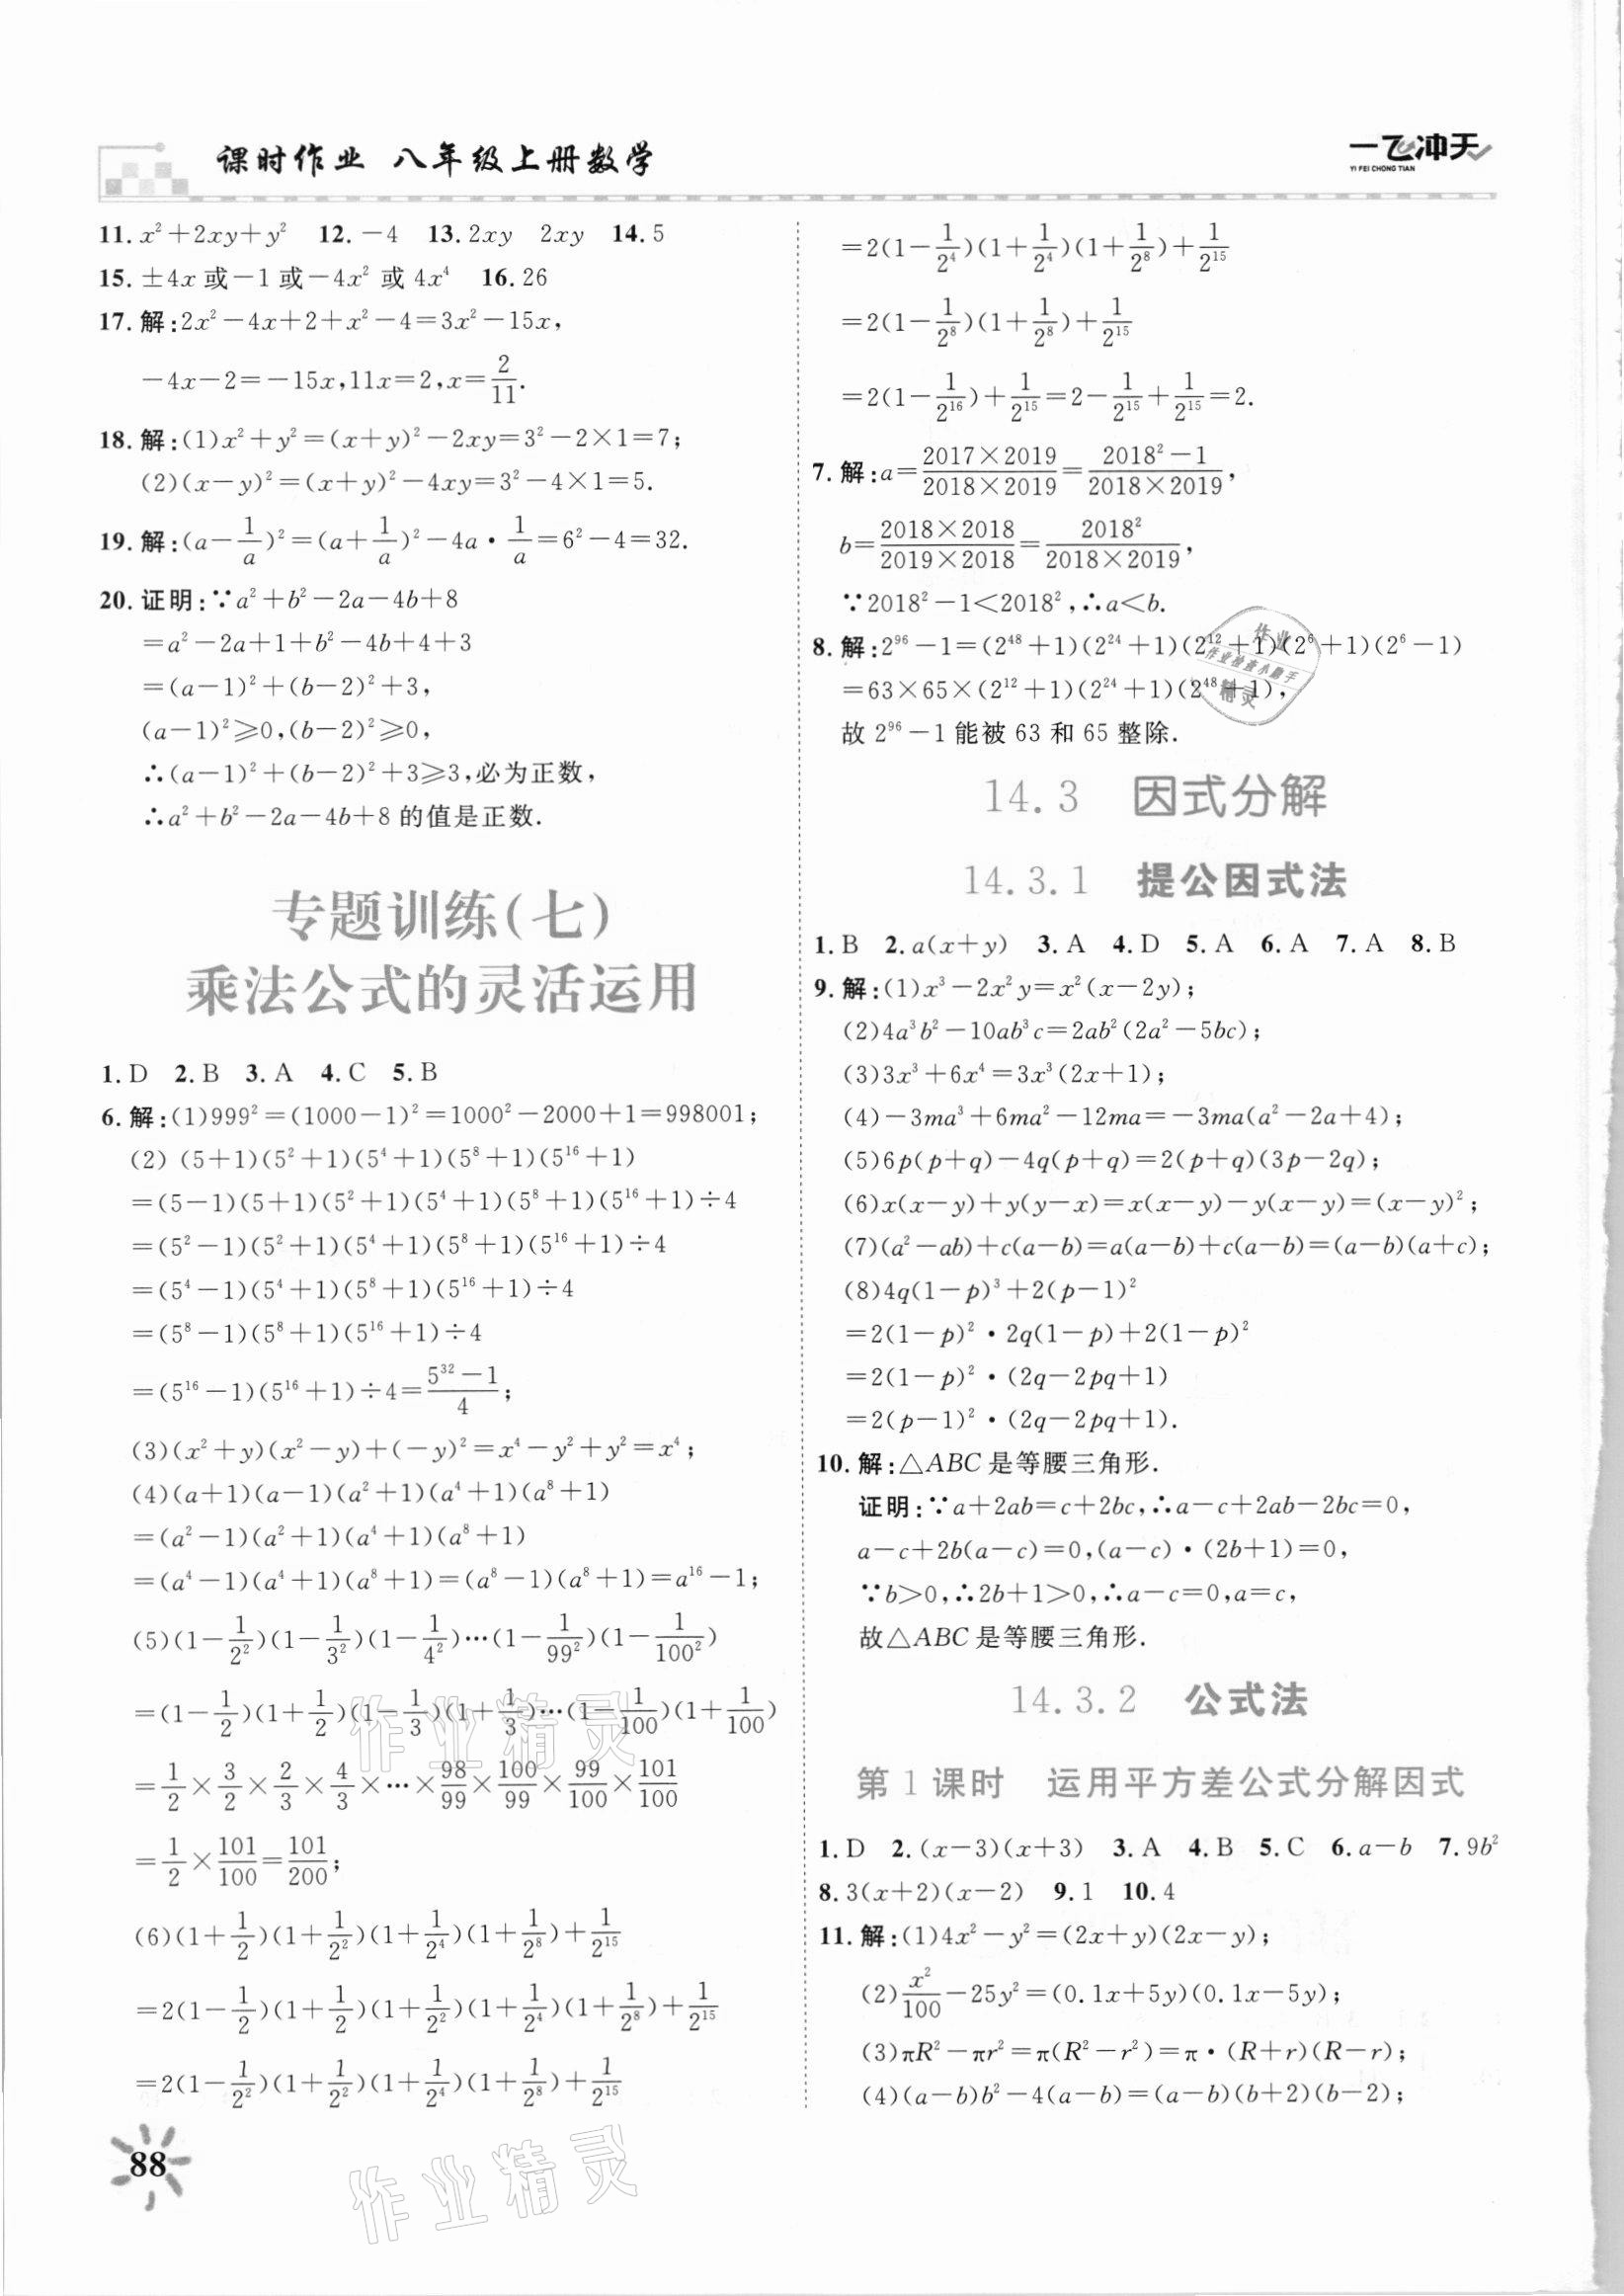 课时作业 八年级上册数学
一飞冲天
YI FEI CHONG TIAN
11. x²+2xy+y² 12. −4 13. 2xy 2xy 14. 5
15. ±4x 或−1 或−4x² 或 4x⁴ 16. 26
17. 解:2x²−4x+2+x²−4=3x²−15x,
−4x−2=−15x,11x=2,x=2/11.
18. 解:(1)x²+y²=(x+y)²−2xy=3²−2×1=7;
(2)(x−y)²=(x+y)²−4xy=3²−4×1=5.
19. 解:(a−1/a)²=(a+1/a)²−4a·1/a=6²−4=32.
20. 证明:∵a²+b²−2a−4b+8
=a²−2a+1+b²−4b+4+3
=(a−1)²+(b−2)²+3,
(a−1)²⩾0,(b−2)²⩾0,
∴(a−1)²+(b−2)²+3⩾3,必为正数,
∴a²+b²−2a−4b+8 的值是正数.
专题训练(七)
乘法公式的灵活运用
1. D 2. B 3. A 4. C 5. B
6. 解:(1)999²=(1000−1)²=1000²−2000+1=998001;
(2) (5+1)(5²+1)(5⁴+1)(5⁸+1)(5¹⁶+1)
=(5−1)(5+1)(5²+1)(5⁴+1)(5⁸+1)(5¹⁶+1)÷4
=(5²−1)(5²+1)(5⁴+1)(5⁸+1)(5¹⁶+1)÷4
=(5⁴−1)(5⁴+1)(5⁸+1)(5¹⁶+1)÷4
=(5⁸−1)(5⁸+1)(5¹⁶+1)÷4
=(5¹⁶−1)(5¹⁶+1)÷4=(5³²−1)/4;
(3)(x²+y)(x²−y)+(−y)²=x⁴−y²+y²=x⁴;
(4)(a+1)(a−1)(a²+1)(a⁴+1)(a⁸+1)
=(a²−1)(a²+1)(a⁴+1)(a⁸+1)
=(a⁴−1)(a⁴+1)(a⁸+1)=(a⁸−1)(a⁸+1)=a¹⁶−1;
(5)(1−1/2²)(1−1/3²)(1−1/4²)…(1−1/99²)(1−1/100²)
=(1−1/2)(1+1/2)(1−1/3)(1+1/3)…(1−1/100)(1+1/100)
=1/2×3/2×2/3×4/3×…×98/99×100/99×99/100×101/100
=1/2×101/100=101/200;
(6)(1+1/2)(1+1/2²)(1+1/2⁴)(1+1/2⁸)+1/2¹⁵
=2(1−1/2)(1+1/2)(1+1/2²)(1+1/2⁴)(1+1/2⁸)+1/2¹⁵
=2(1−1/2²)(1+1/2²)(1+1/2⁴)(1+1/2⁸)+1/2¹⁵
88
=2(1−1/2⁴)(1+1/2⁴)(1+1/2⁸)+1/2¹⁵
=2(1−1/2⁸)(1+1/2⁸)+1/2¹⁵
=2(1−1/2¹⁶)+1/2¹⁵=2−1/2¹⁵+1/2¹⁵=2.
7. 解:a=(2017×2019)/(2018×2019)=(2018²−1)/(2018×2019),
b=(2018×2018)/(2019×2018)=2018²/(2018×2019),
∵2018²−1<2018²,∴a<b.
8. 解:2⁹⁶−1=(2⁴⁸+1)(2²⁴+1)(2¹²+1)(2⁶+1)(2⁶−1)
=63×65×(2¹²+1)(2²⁴+1)(2⁴⁸+1),
故 2⁹⁶−1 能被 63 和 65 整除.
14.3 因式分解
14.3.1 提公因式法
1. B 2. a(x+y) 3. A 4. D 5. A 6. A 7. A 8. B
9. 解:(1)x³−2x²y=x²(x−2y);
(2)4a³b²−10ab³c=2ab²(2a²−5bc);
(3)3x³+6x⁴=3x³(2x+1);
(4)−3ma³+6ma²−12ma=−3ma(a²−2a+4);
(5)6p(p+q)−4q(p+q)=2(p+q)(3p−2q);
(6)x(x−y)+y(y−x)=x(x−y)−y(x−y)=(x−y)²;
(7)(a²−ab)+c(a−b)=a(a−b)+c(a−b)=(a−b)(a+c);
(8)4q(1−p)³+2(p−1)²
=2(1−p)²·2q(1−p)+2(1−p)²
=2(1−p)²·(2q−2pq+1)
=2(p−1)²·(2q−2pq+1).
10. 解:△ABC 是等腰三角形.
证明:∵a+2ab=c+2bc,∴a−c+2ab−2bc=0,
a−c+2b(a−c)=0,(a−c)·(2b+1)=0,
∵b>0,∴2b+1>0,∴a−c=0,a=c,
故△ABC 是等腰三角形.
14.3.2 公式法
第 1 课时 运用平方差公式分解因式
1. D 2. (x−3)(x+3) 3. A 4. B 5. C 6. a−b 7. 9b²
8. 3(x+2)(x−2) 9. 1 10. 4
11. 解:(1)4x²−y²=(2x+y)(2x−y);
(2)x²/100−25y²=(0.1x+5y)(0.1x−5y);
(3)πR²−πr²=π(R²−r²)=π·(R+r)(R−r);
(4)(a−b)b²−4(a−b)=(a−b)(b+2)(b−2);
作业
作业检查小助手
精灵
作业精灵
作业精灵